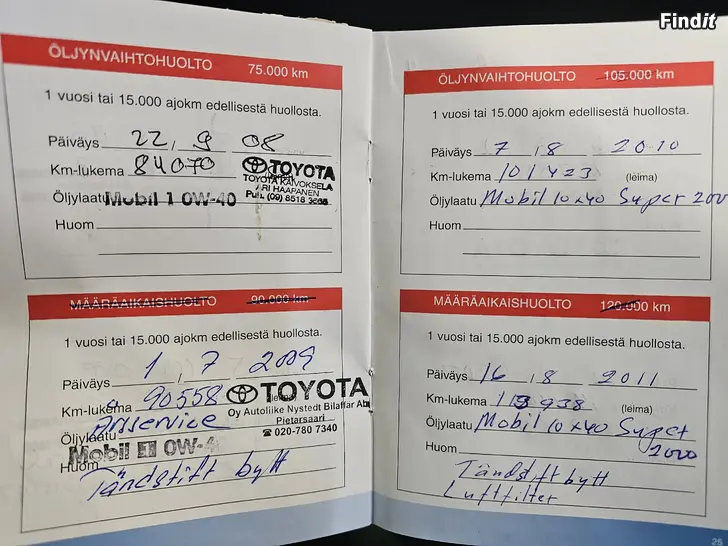 Findit
ÖLJYNVAIHTOHUOLTO 75.000 km
1 vuosi tai 15.000 ajokm edellisestä huollosta.
Päiväys 22, 9 08
Km-lukema 84070
TOYOTA
TOYOTA KAIVOKSELA
ARI HAAPANEN
Puh. (09) 8518
Öljylaatu Mobil 1 0W-40
Huom
MÄÄRÄAIKAISHUOLTO 90.000 km
1 vuosi tai 15.000 ajokm edellisestä huollosta.
Päiväys 1, 7 2009
Km-lukema 90558 (leima)
TOYOTA
Oy Autoliike Nystedt Bilaffär Ab
Pietarsaari
☎ 020-780 7340
Årservice
Öljylaatu Mobil 1 0W-4
Huom Tändstift bytt
ÖLJYNVAIHTOHUOLTO 105.000 km
1 vuosi tai 15.000 ajokm edellisestä huollosta.
Päiväys 7 , 8 2010
Km-lukema 101423 (leima)
Öljylaatu Mobil 10x40 Super 200
Huom
MÄÄRÄAIKAISHUOLTO 120.000 km
1 vuosi tai 15.000 ajokm edellisestä huollosta.
Päiväys 16 , 8 2011
Km-lukema 113938 (leima)
Öljylaatu Mobil 10x40 Super
Huom 2000
Tändstift bytt
Luftfilter
25